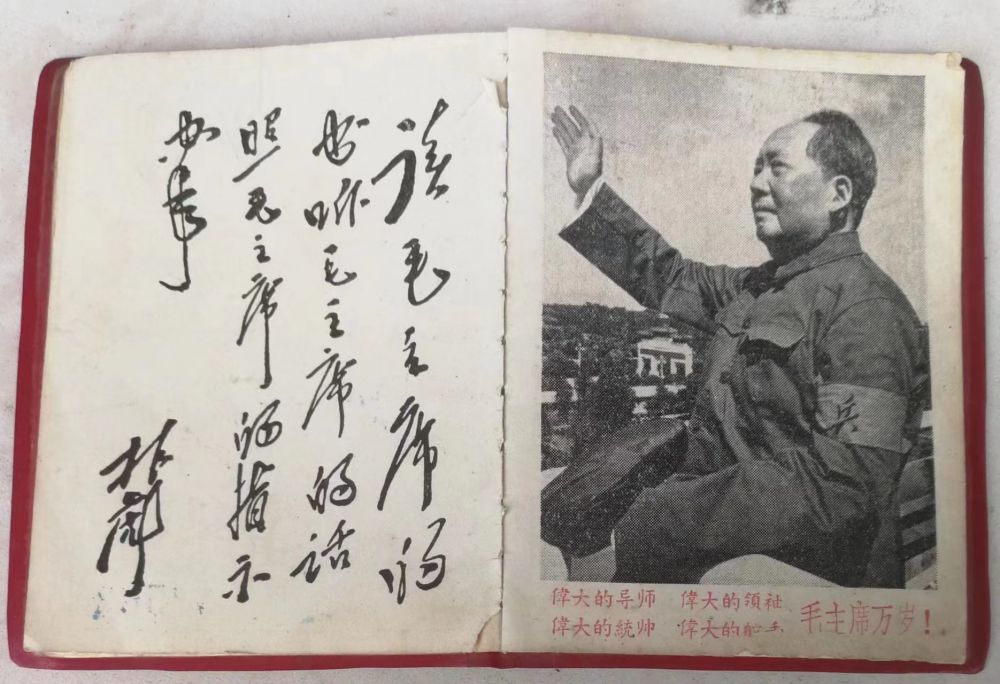 读毛主席的
书听毛主席的话
照毛主席的指示
办事
林彪
兵
偉大的导师 偉大的領袖
偉大的統帅 偉大的舵手
毛主席万岁!